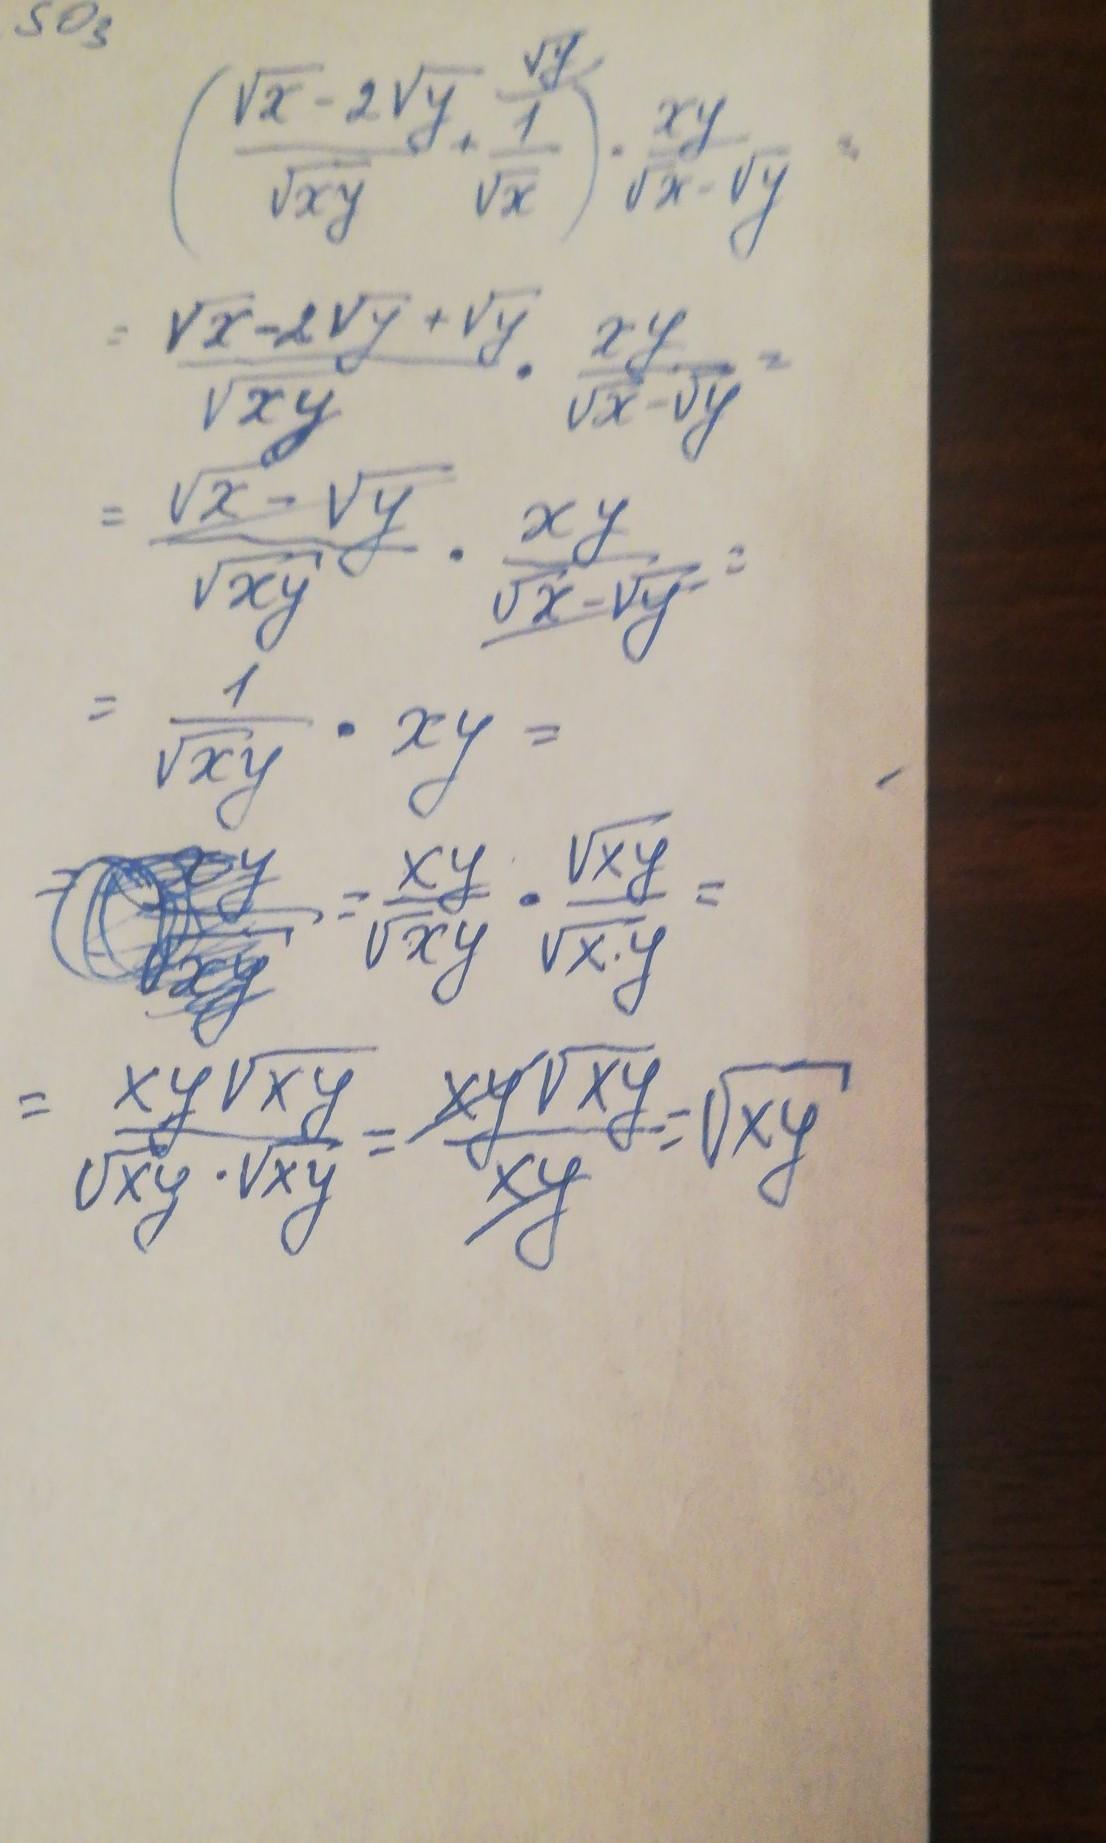 SO₃
((√x - 2√y)/√xy + 1/√x ^√y) · xy/(√x - √y) =
= (√x - 2√y + √y)/√xy · xy/(√x - √y) =
= (√x - √y)/√xy · xy/(√x - √y) =
= 1/√xy · xy =
= xy/√xy · √xy/√x·y =
= xy√xy/(√xy · √xy) = xy√xy/xy = √xy